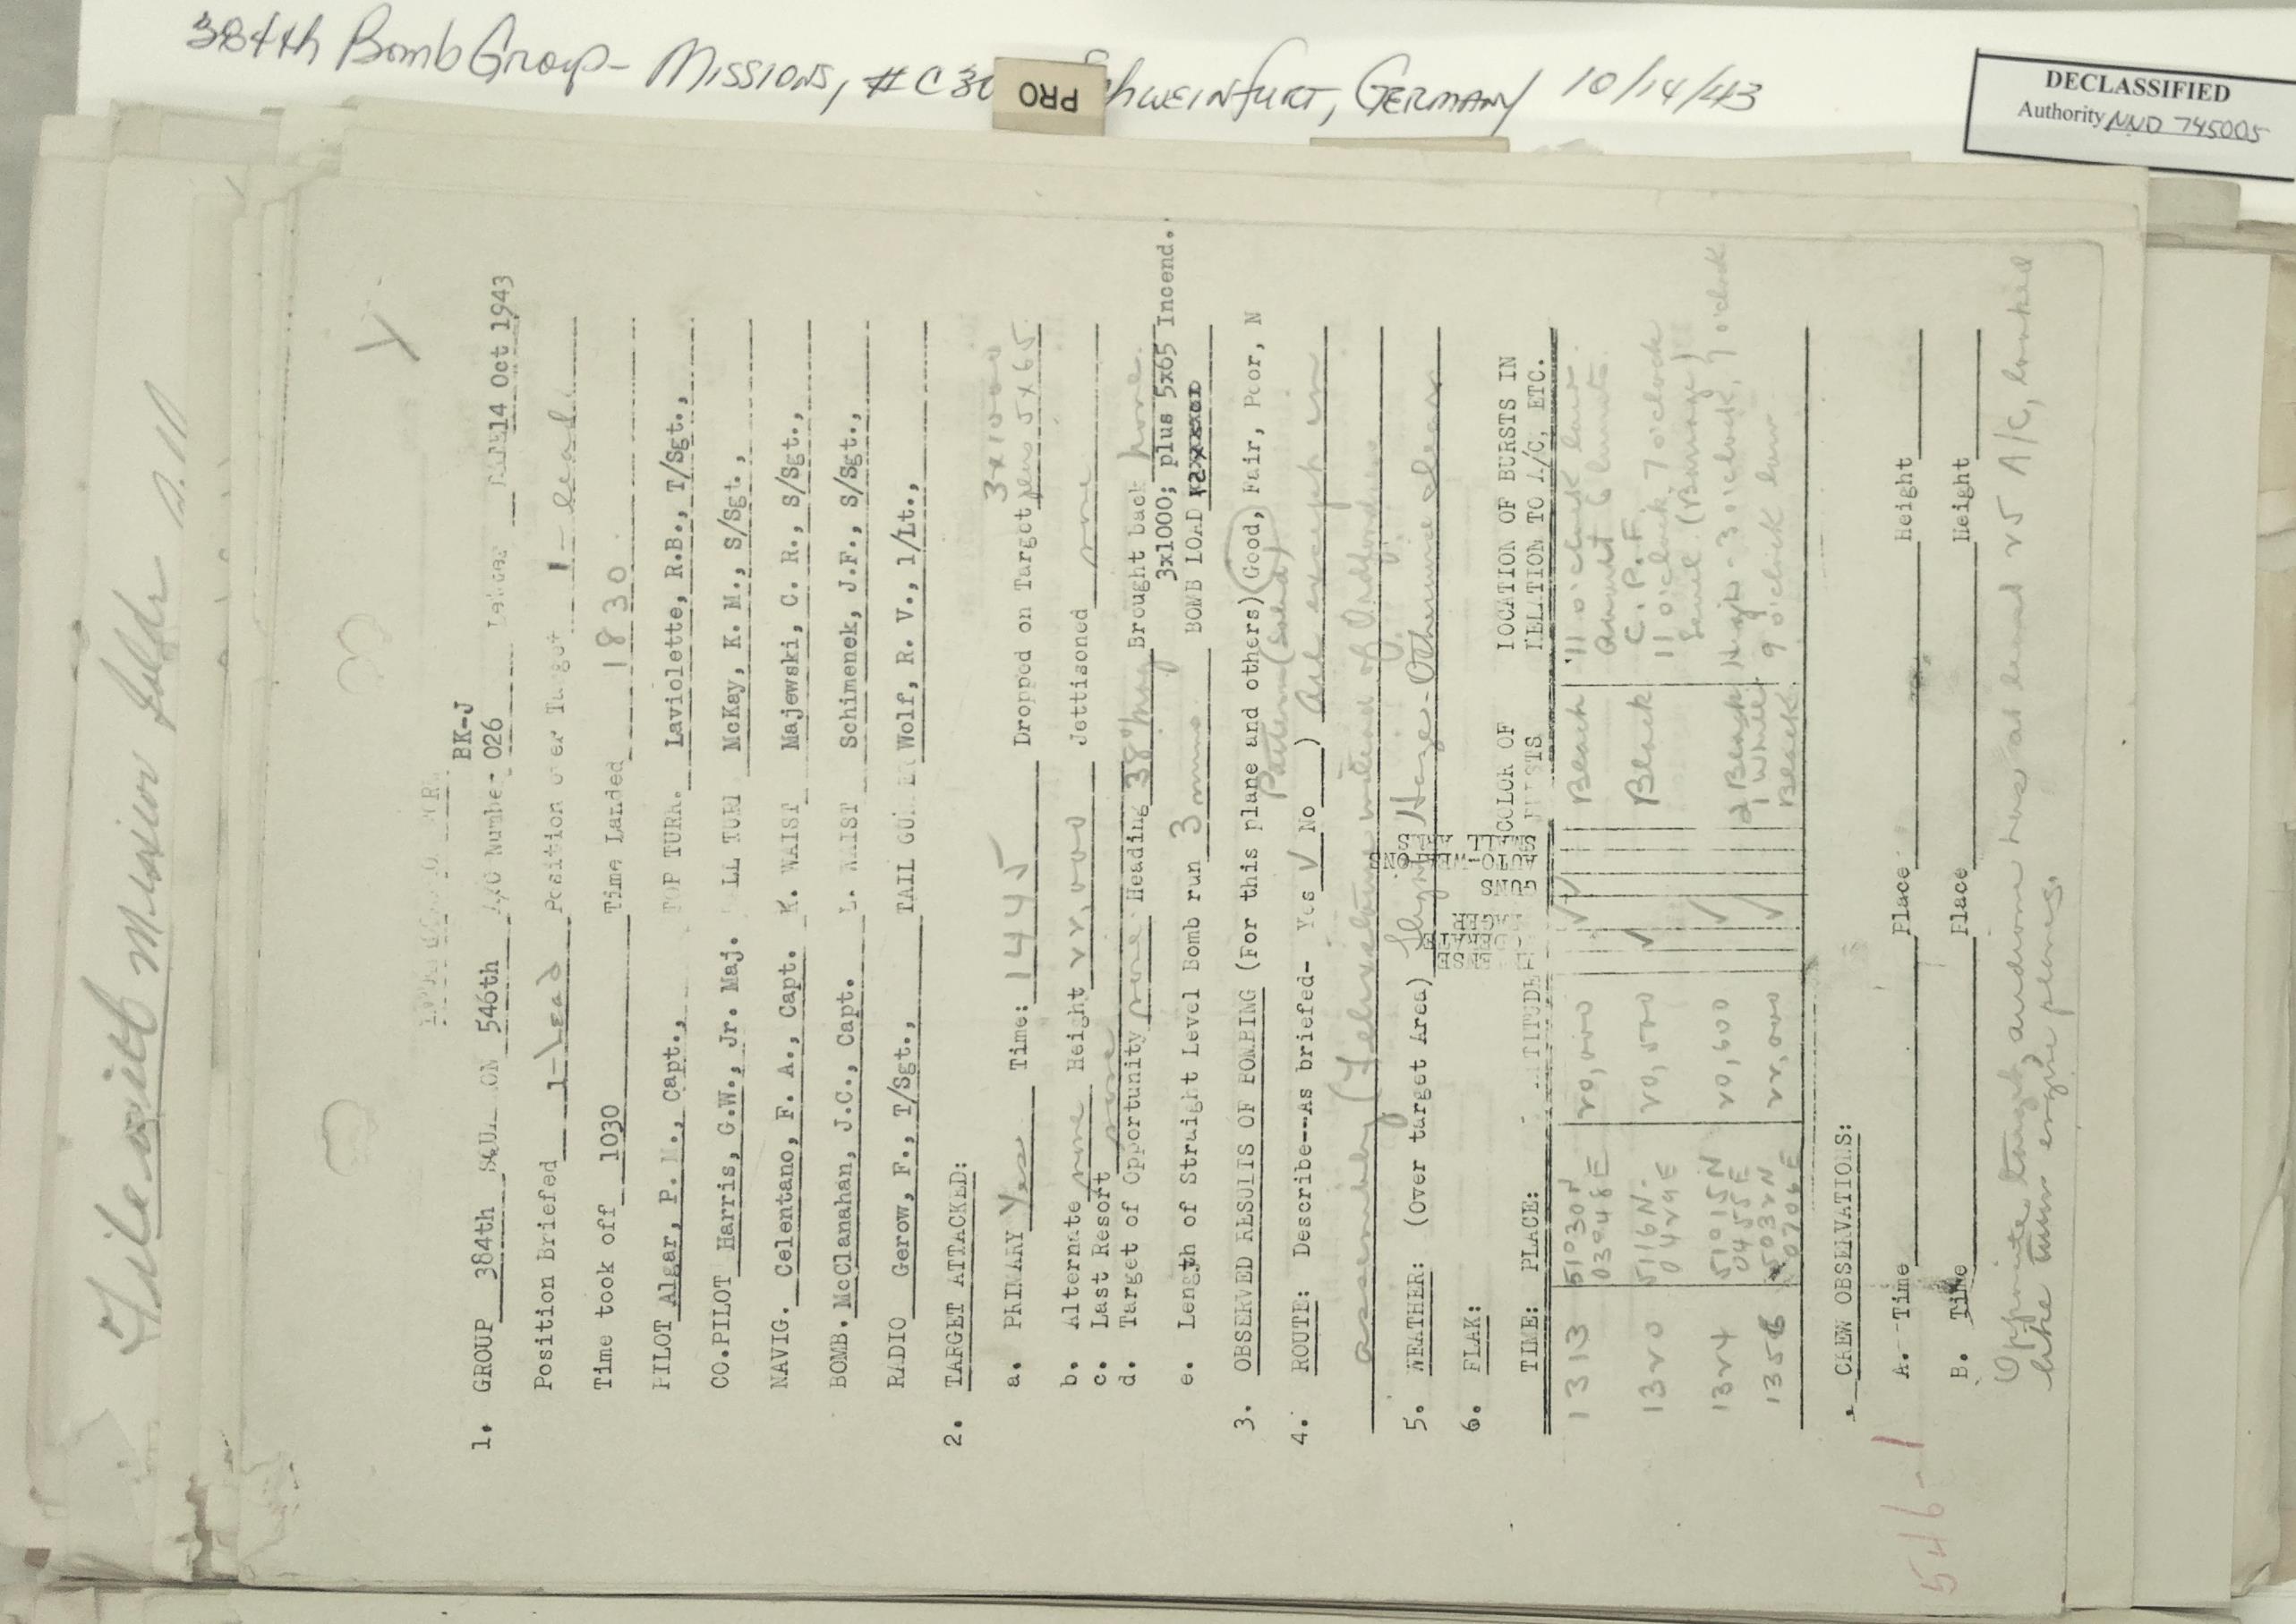 384th Bomb Group - Missions, #C30 hweinfurt, Germany 10/14/43
PRO
DECLASSIFIED
Authority NND 745005
File with Mission folder
BK-J
1. GROUP 384th 546th A/C Number- 026 Letter 14 Oct 1943
Position Briefed 1-Lead Position over Target 1-Lead
Time took off 1030 Time Landed 1830
PILOT Algar, P. M., Capt., TOP TURR. Laviolette, R.B., T/Sgt.,
CO.PILOT Harris, G.W., Jr. Maj. LL TURR McKay, K. M., S/Sgt.,
NAVIG. Celentano, F. A., Capt. R. WAIST Majewski, C. R., S/Sgt.,
BOMB. McClanahan, J.C., Capt. L. WAIST Schimenek, J.F., S/Sgt.,
RADIO Gerow, F., T/Sgt., TAIL GUNNER Wolf, R. V., 1/Lt.,
2. TARGET ATTACKED:
3x1000
a. PRIMARY Yes Time: 1445 Dropped on Target plus 5x65
b. Alternate none Height 22,000 Jettisoned none
c. Last Resort none
d. Target of Opportunity none Heading 38° Mag Brought back none
3x1000; plus 5x65 Incend.
e. Length of Straight Level Bomb run 3 mins. BOMB LOAD
3. OBSERVED RESULTS OF BOMBING (For this plane and others) Good, Fair, Poor, N
Pattern (Solid)
4. ROUTE: Describe--As briefed- Yes √ No ) All except in
assembly (Felixstowe instead of Orfordness
5. WEATHER: (Over target Area) Slight Haze - Otherwise clear
6. FLAK:
TIME: PLACE: ALTITUDE GUNS AUTO-WEAPONS SMALL COLOR OF BURSTS LOCATION OF BURSTS IN RELATION TO A/C, ETC.
1313 51030N 03948E 20,000 √ Black 11 o'clock low. about 6 bursts
1320 5116N- 0429E 20,500 √ Black C.P.F. 11 o'clock, 7 o'clock
1324 51015N 0455E 20,600 √ 2 Black 1 White High - 3 o'clock, 7 o'clock
1356 5032N 0706E 22,000 √ Black 9 o'clock low
CREW OBSERVATIONS:
A. Time Place Height
B. Time Place Height
Opposite target, airdrome has at least 25 A/C, looked
like twin engine planes.
546-1